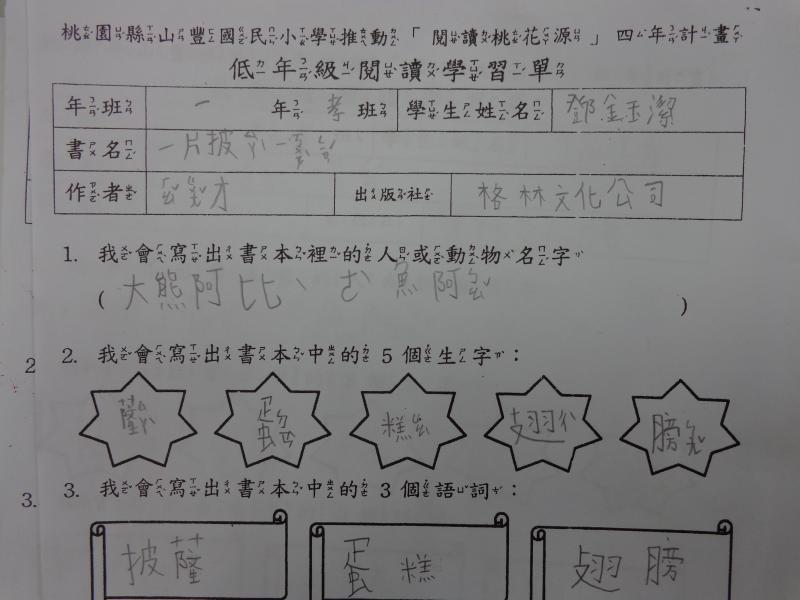 桃園縣山豐國民小學推動「閱讀桃花源」四年計畫
低年級閱讀學習單
年班 一 年 孝 班 學生姓名 鄧鈺潔
書名 一片披ㄙㄚ一
作者 才 出版社 格林文化公司
1. 我會寫出書本裡的人或動物名字
( 大熊阿比、 魚阿 )
2
2. 我會寫出書本中的 5 個生字：
蛋 糕 翅 膀
3.
3. 我會寫出書本中的 3 個語詞：
披薩 蛋糕 翅膀